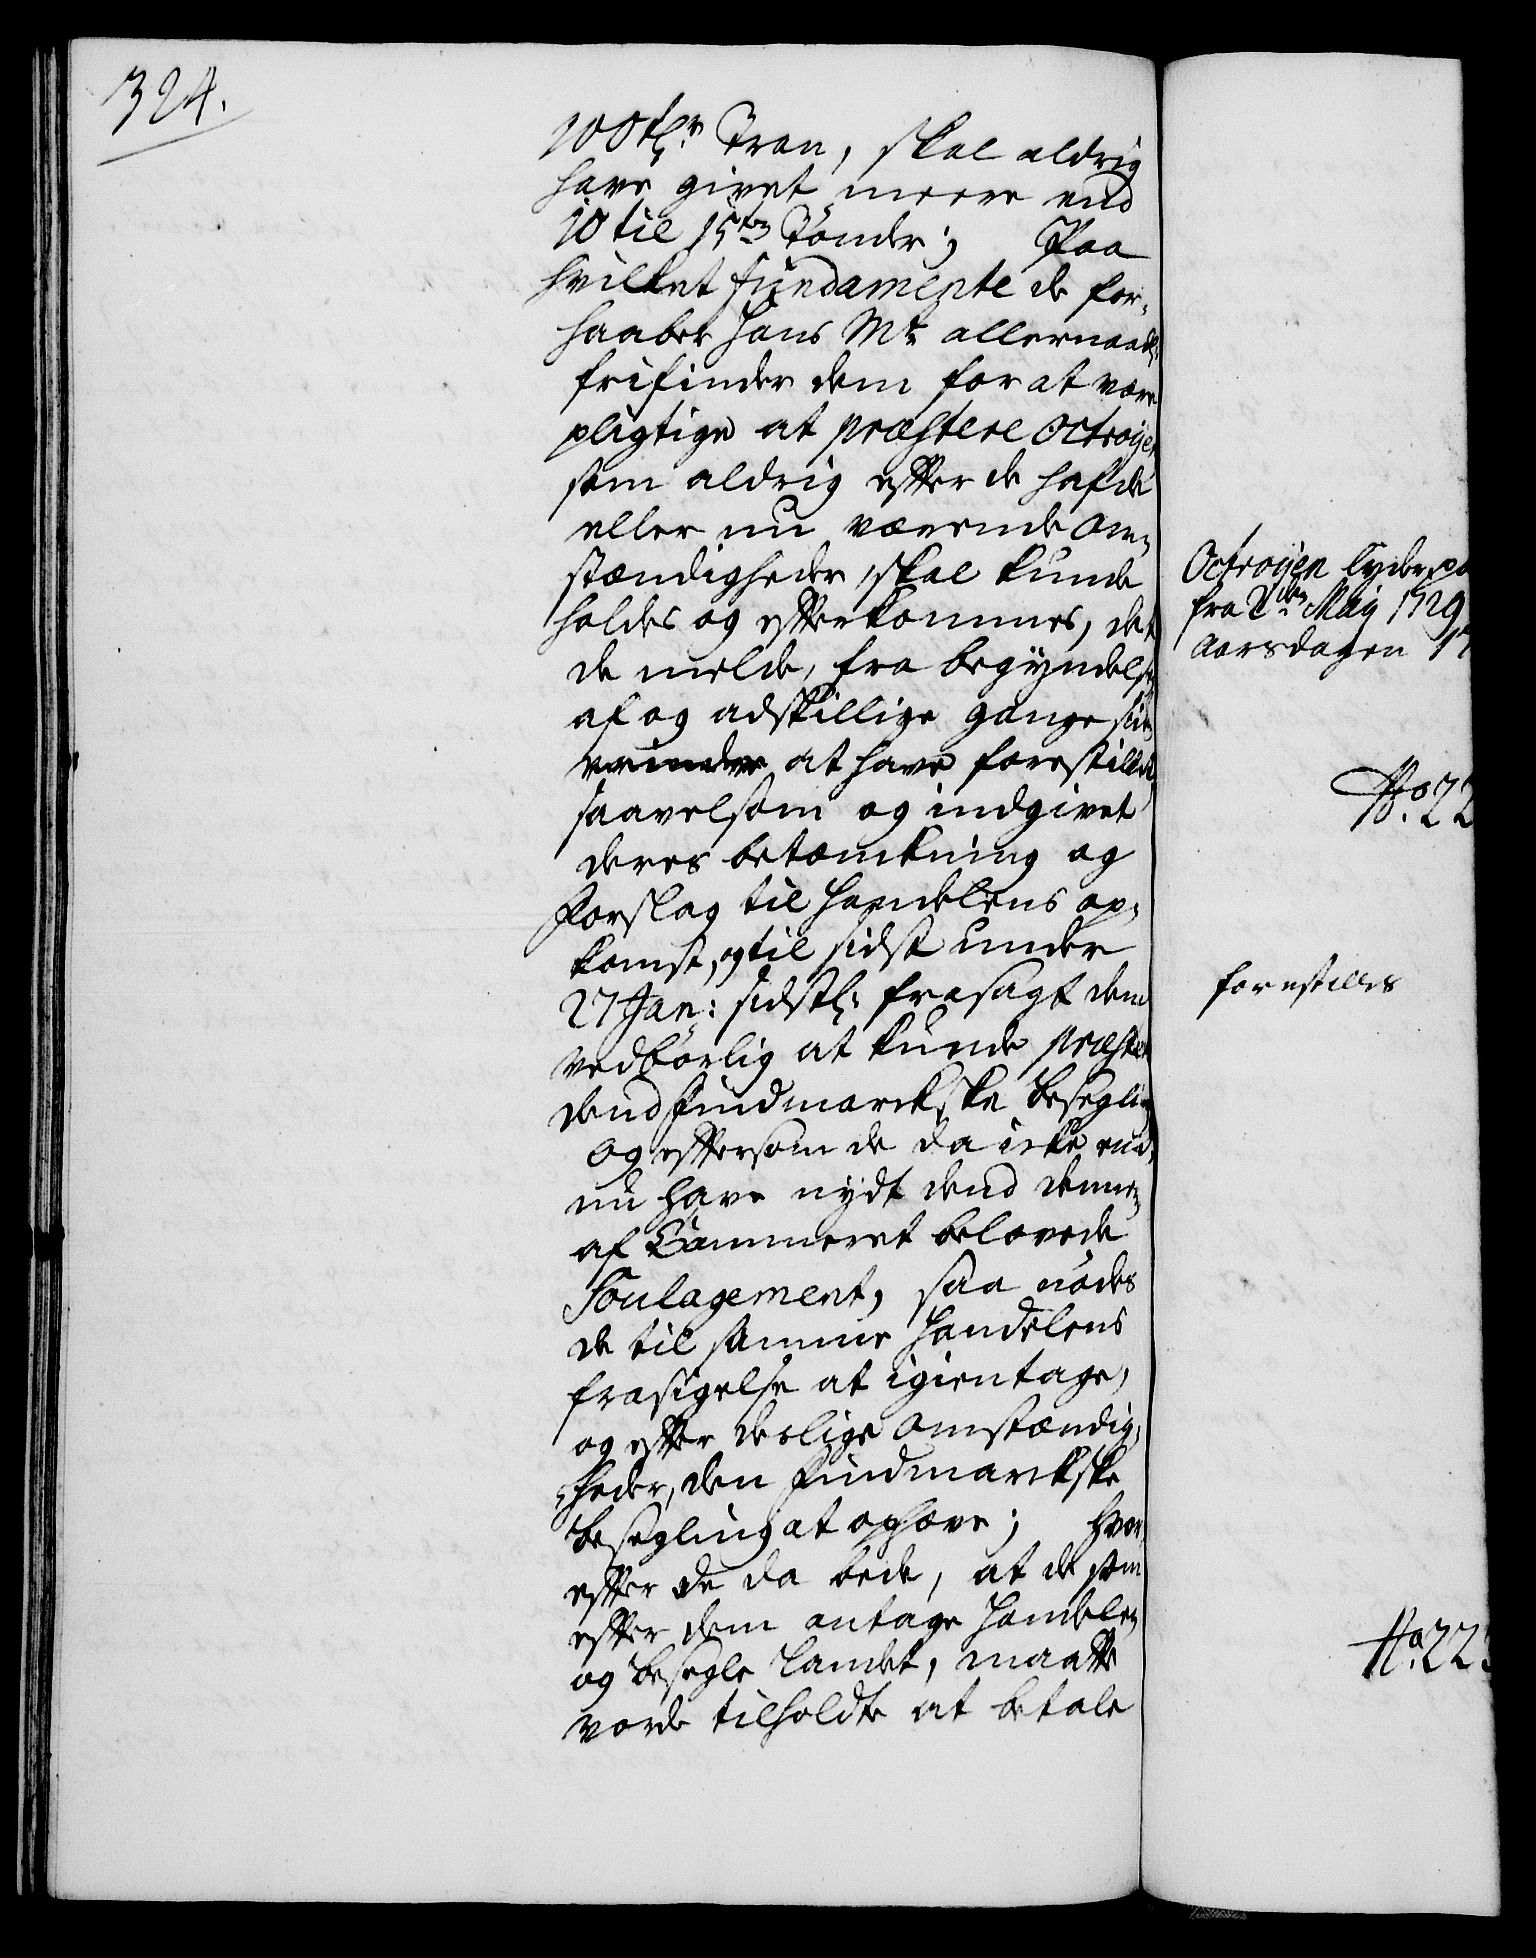 324.
100 tdr Tran, skal aldrig
have givet meere end
10 til 15ten Tønder; Paa
hvilket fundamente de for-
haaber Hans Mt allernaadl:
frifinder dem for at være
pligtige at præstere Octroÿen
som aldrig efter de hafde
eller nu værende om-
stændigheder, skal kunde
holdes og efterkommes, det
de melde, fra begÿndelsen
af og adskillige gange siden
at have forestillet,
saavelsom og indgivet
deres betænkning og
Forslag til Handelens op-
komst, og til sidst under
27 Jan: sidstl: frasagt dem
vedbørlig at kunde præstere
dend Findmarckske Beseglin
og eftersom de da icke end-
nu have nÿdt dend dennem
af Cammeret belovede
Soulagement, saa nødes
de til samme Handelens
frasigelse at igientage,
og efter deslige omstændig-
heder, den Findmarckske
Besegling at ophøre; hvor
efter de da bede, at de som
efter dem antage Handelen
og besegle Landet, maatte
vorde tilholdte at betale
Octroÿen lyder paa
fra 2den Maÿ 1729
Aarsdagen 17
No. 22
forestilles
No. 22